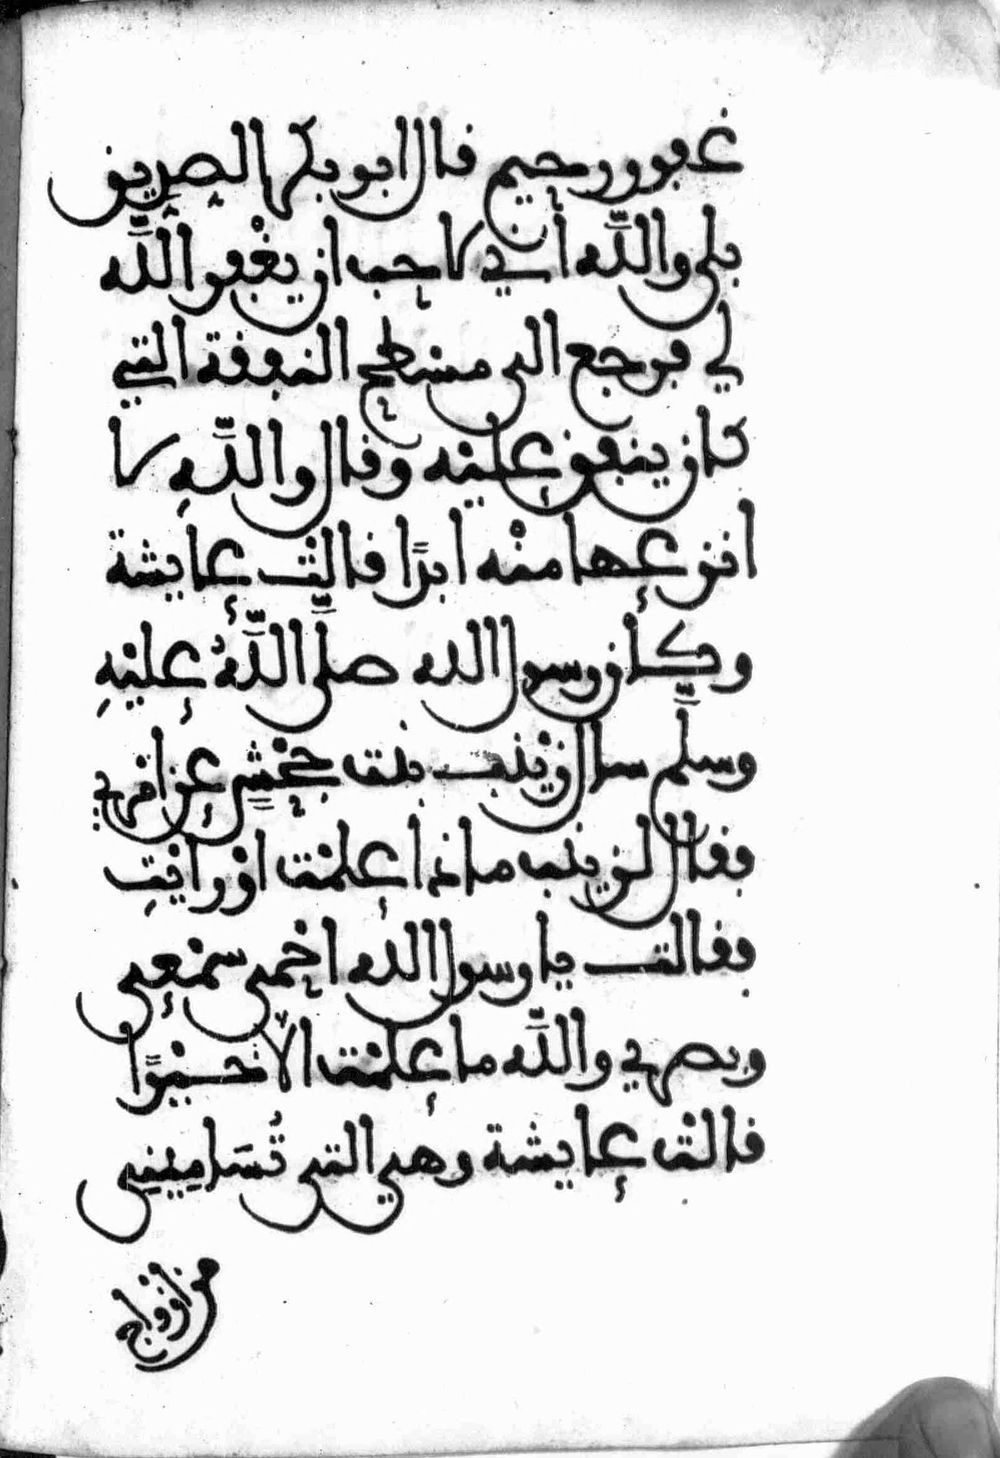 غفور رحيم قال ابو بكر الصديق
بلى والله اني لاحب ان يغفر الله
لي فرجع الى مسطح النفقة التي
كان ينفق عليه وقال والله لا
انزعها منه ابدًا قالت عايشة
وكان رسول الله صلَّى اللَّهُ عليهِ
وسلَّم سال زينب بنت جحشٍ عن امري
فقال لزينب ماذا علمت او رايتِ
فقالت يا رسول الله احمي سمعي
وبصري والله ما علمت الا خيرًا
قالت عايشة وهي التي تُسَامِينِي
من ازواج